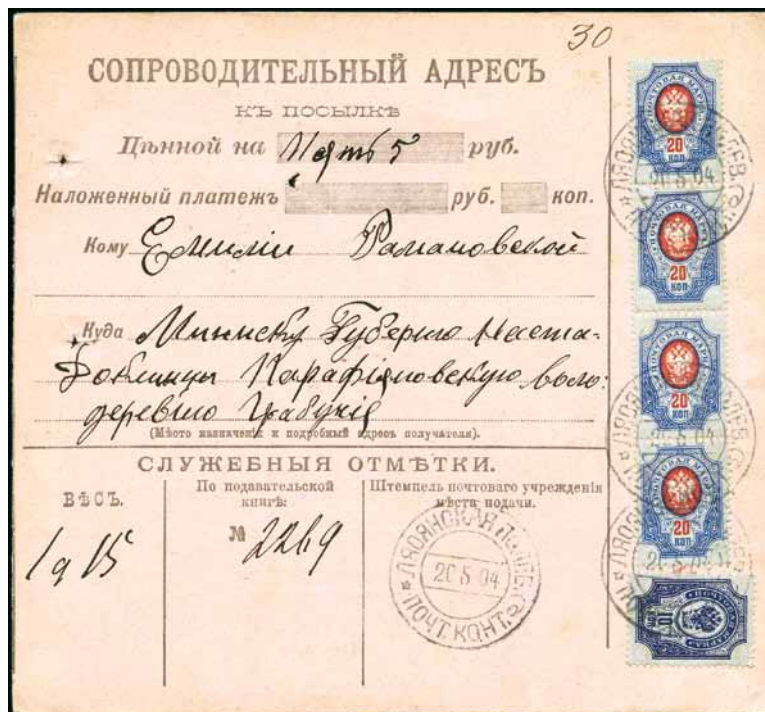 30
СОПРОВОДИТЕЛЬНЫЙ АДРЕСЪ
КЪ ПОСЫЛКѢ
Цѣнной на 5 руб.
Наложенный платежъ руб. коп.
Кому Емиліи Рамановской
Куда Минску Губернію
Карафіяновскую воло:
деревню
(Мѣсто назначенія и подробный адресъ получателя).
СЛУЖЕБНЫЯ ОТМѢТКИ.
ВѢСЪ.
По подавательской книгѣ:
Штемпель почтоваго учрежденія мѣста подачи.
№ 2269
ЛЯОЯНСКАЯ ПОЧТ. КОНТ.
20 5 04
ПОЧТОВАЯ МАРКА
20 КОП
ПОЧТОВАЯ МАРКА
20 КОП
ПОЧТОВАЯ МАРКА
20 КОП
ПОЧТОВАЯ МАРКА
20 КОП
ПОЧТОВАЯ МАРКА
10 КОП